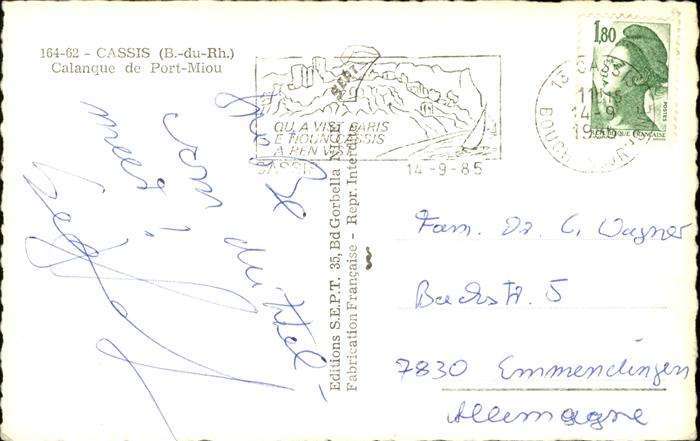 164-62 - CASSIS (B.-du-Rh.)
Calanque de Port-Miou
Grüße
vom Mittel-
meer!
QU A VIST PARIS
E NOUN CASSIS
A REN VIST
CASSIS
14-9-85
13 CASSIS
14-9
1985
1,80
POSTES
REPUBLIQUE FRANÇAISE
Editions S.E.P.T. 35, Bd Gorbella NICE
Fabrication Française - Repr. Interdite
Fam. Dr. C. Wagner
Bachstr. 5
7830 Emmendingen
Allemagne